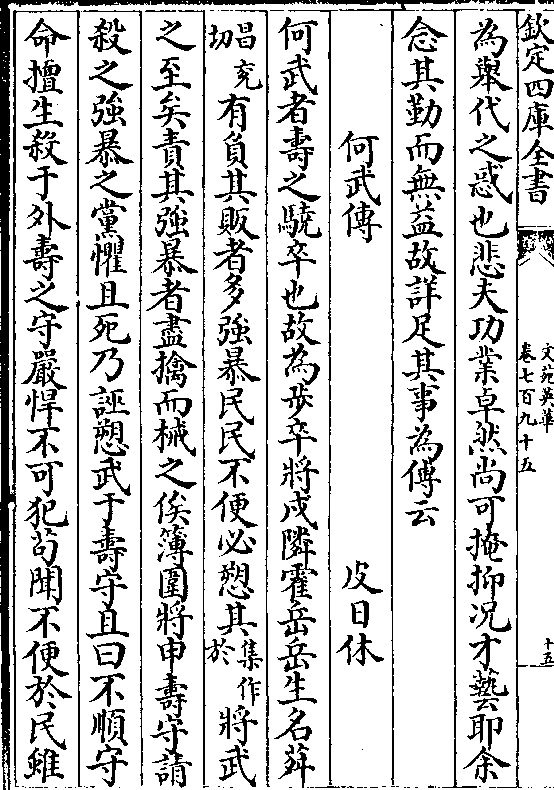 欽定四庫全書
文苑英華
卷七百九十五
十五
為舉代之惑也悲夫功業卓然尚可掩抑况才藝耶余
念其勤而無益故詳足其事為傳云
何武傳
皮日休
何武者壽之驍卒也故為步卒將戍隣霍岳岳生名荈
昌兖切有負其販者多強暴民民不便必愬其集作於將武
之至矣責其強暴者盡擒而械之俟簿圍將申壽守請
殺之強暴之黨懼且死乃誣愬武于壽守且曰不順守
命擅生殺于外壽之守嚴悍不可犯苟聞不便於民雖